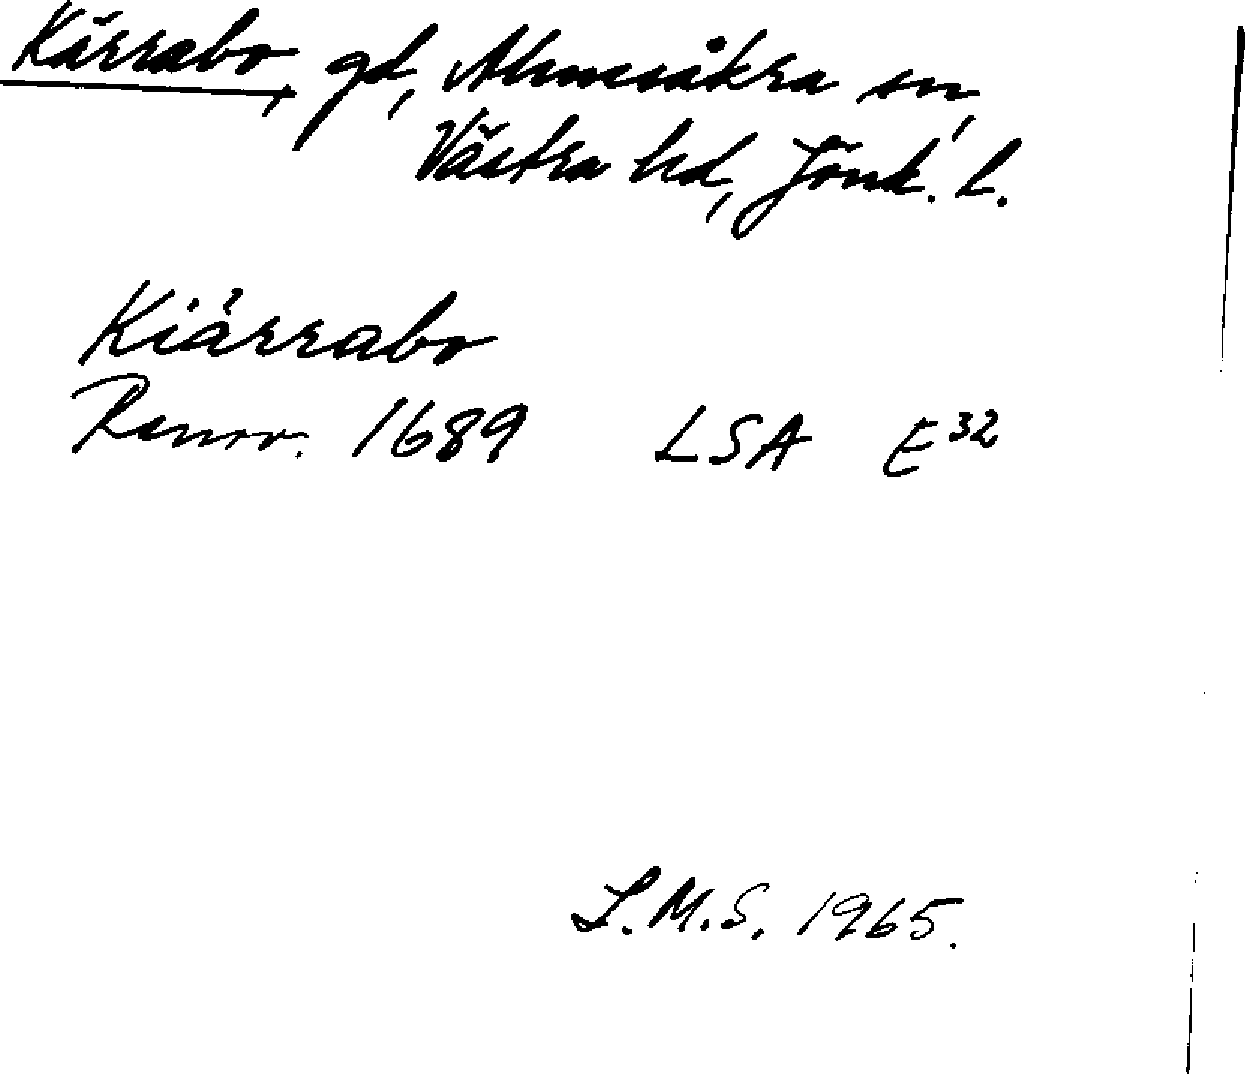 Kärrabo, gd, Almesåkra sn,
Västra hd, Jönk. l.
Kiärrabo
Renov. 1689 LSA E³²
I.M.S. 1965.